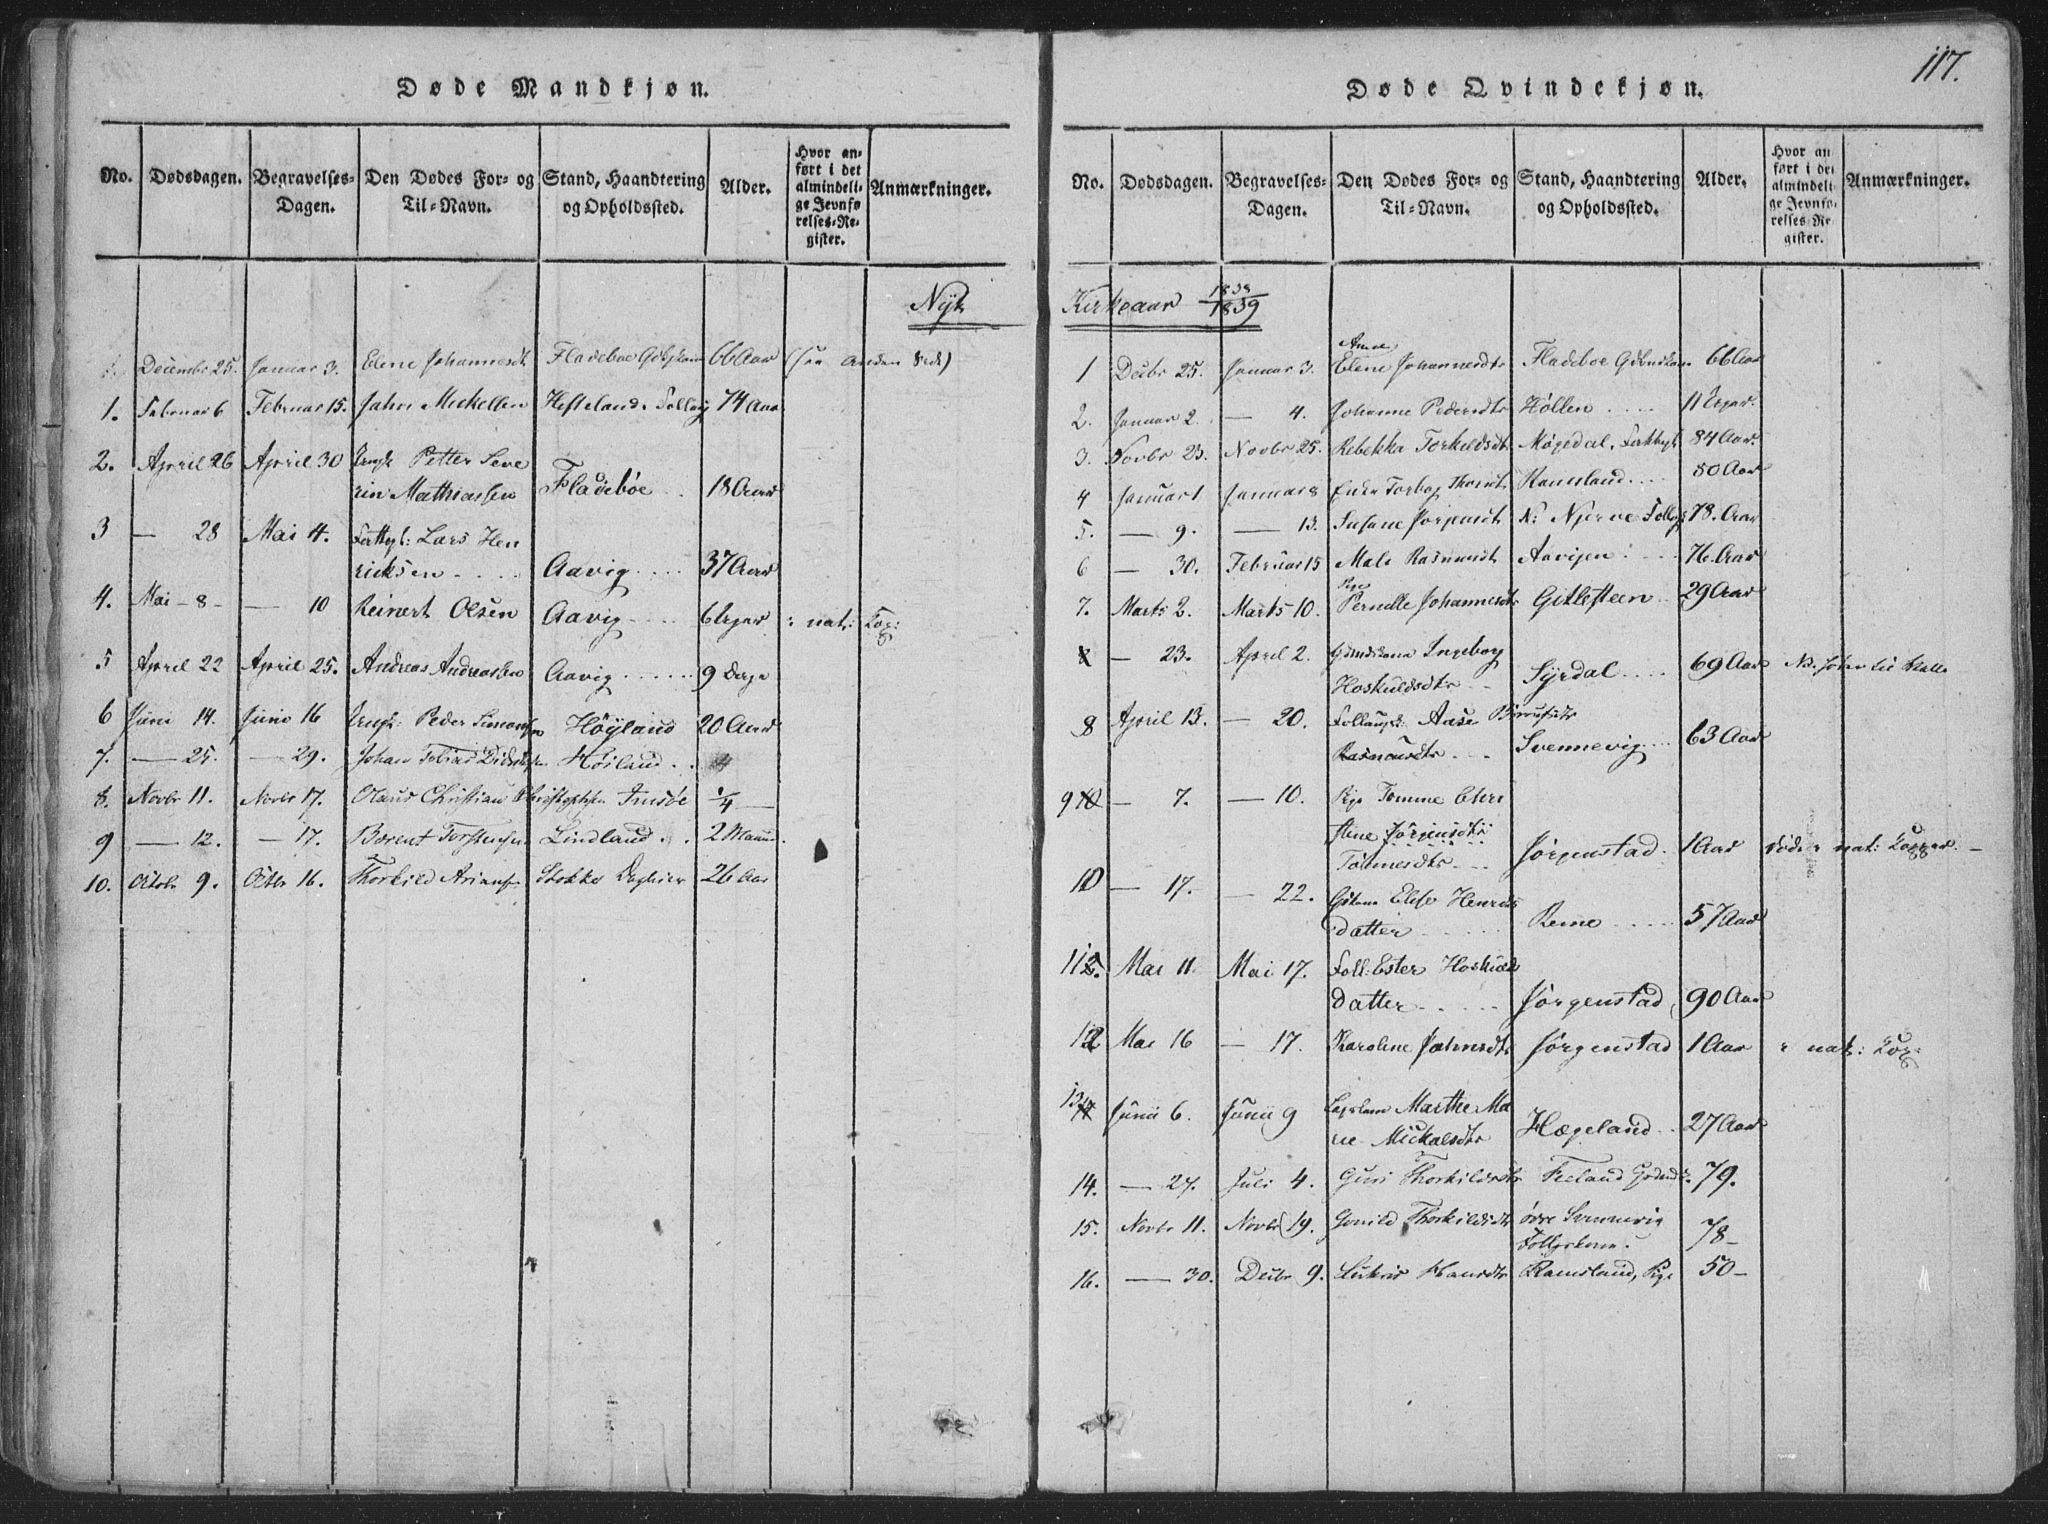 Døde Mandkjøn.
No. Dødsdagen. Begravelses-Dagen. Den Dødes For- og Til-Navn. Stand, Haandtering og Opholdssted. Alder. Hvor anført i det almindelige Jevnførelses-Register. Anmærkninger.
Nyt
Decembr 25. Januar 3. Elene Johannesdt Fladeboe 66 Aar (see anden Side)
1. Februar 6 Februar 15. Jahn Mickelsen Hefteland 74 Aar
2. April 26 April 30 Petter Seve
rin Mathiassen Fladebøe 18 Aar
3 — 28 Mai 4. Lars Hen
ricksen Aavig 37 Aar
4. Mai - 8 - — 10 Reinert Olsen Aavig 6 nat: Kop:
5 April 22 April 25. Andreas Andreassen Aavig 9 Dage
6 Juni 14. Juni 16 Peder Simonsen Høyland 20 Aar
7. — 25. — 29. Johan Tobias Høiland 4
8. Novbr 11. Novbr 17. Olaus Christian Christophsen 1/4 —
9 — 12. — 17. Berent Torstensen Lindland 2 Maaned.
10. Octobr 9. Octbr 16. Thorkild Ariansen Stokke 26 Aar
117.
Døde Qvindekjøn.
No. Dødsdagen. Begravelses-Dagen. Den Dødes For- og Til-Navn. Stand, Haandtering og Opholdssted. Alder. Hvor anført i det almindelige Jevnførelses-Register. Anmærkninger.
Kirkeaar 1838/1839
Anne
1 Decbr 25. Januar 3. Elene Johannesdtr Fladeboe 66 Aar
2. Januar 2. — 4. Johanne Pedersdtr Høllen 11
3. Novbr 23. Novbr 25. Rebekka Torkildsdt Møgedal, 84 Aar.
4 Januar 1 Januar 8 Enke Ramsland 80 Aar
5. — 9. — 13. Susane Jørgensdt N: Njerve 78. Aar
6 — 30. Februar 15 Male Rasmusdt Aavigen 76. Aar
7. Marts 2. Marts 10. Pernille Johannesdtr Gitlesteen 29 Aar
8 — 23. April 2. Ingeborg
Hoskuldsdtr Syrdal 69 Aar
8 April 13. — 20. Aase
Rasmusdtr Svennevig 63 Aar
9 10 — 7. — 10. Pige Tomine Chri
stine Jörgensdtr
Tolmesdtr Jørgenstad 1 Aar nat: Kopper
10 — 17. — 22. Else Henriks
datter Reme 57 Aar
11 Mai 11. Mai 17. Ester Hoskulds
datter Jørgenstad 90 Aar
12 Mai 16 — 17. Karoline Jahnsdtr Jørgenstad 1 Aar nat: Kop:
13 Junii 6. Junii 9 Marthe Ma
rie Mickalsdtr Hægeland 27 Aar
14. — 27. Juli 4. Guri Thorkildsdtr 79.
15. Novbr 11. Novbr 19. Gunild Thorkildsdtr øvre Svennevig
78 —
16. — 30. Decbr 9. Lukris Hansdtr Ramsland, Pige 50 —